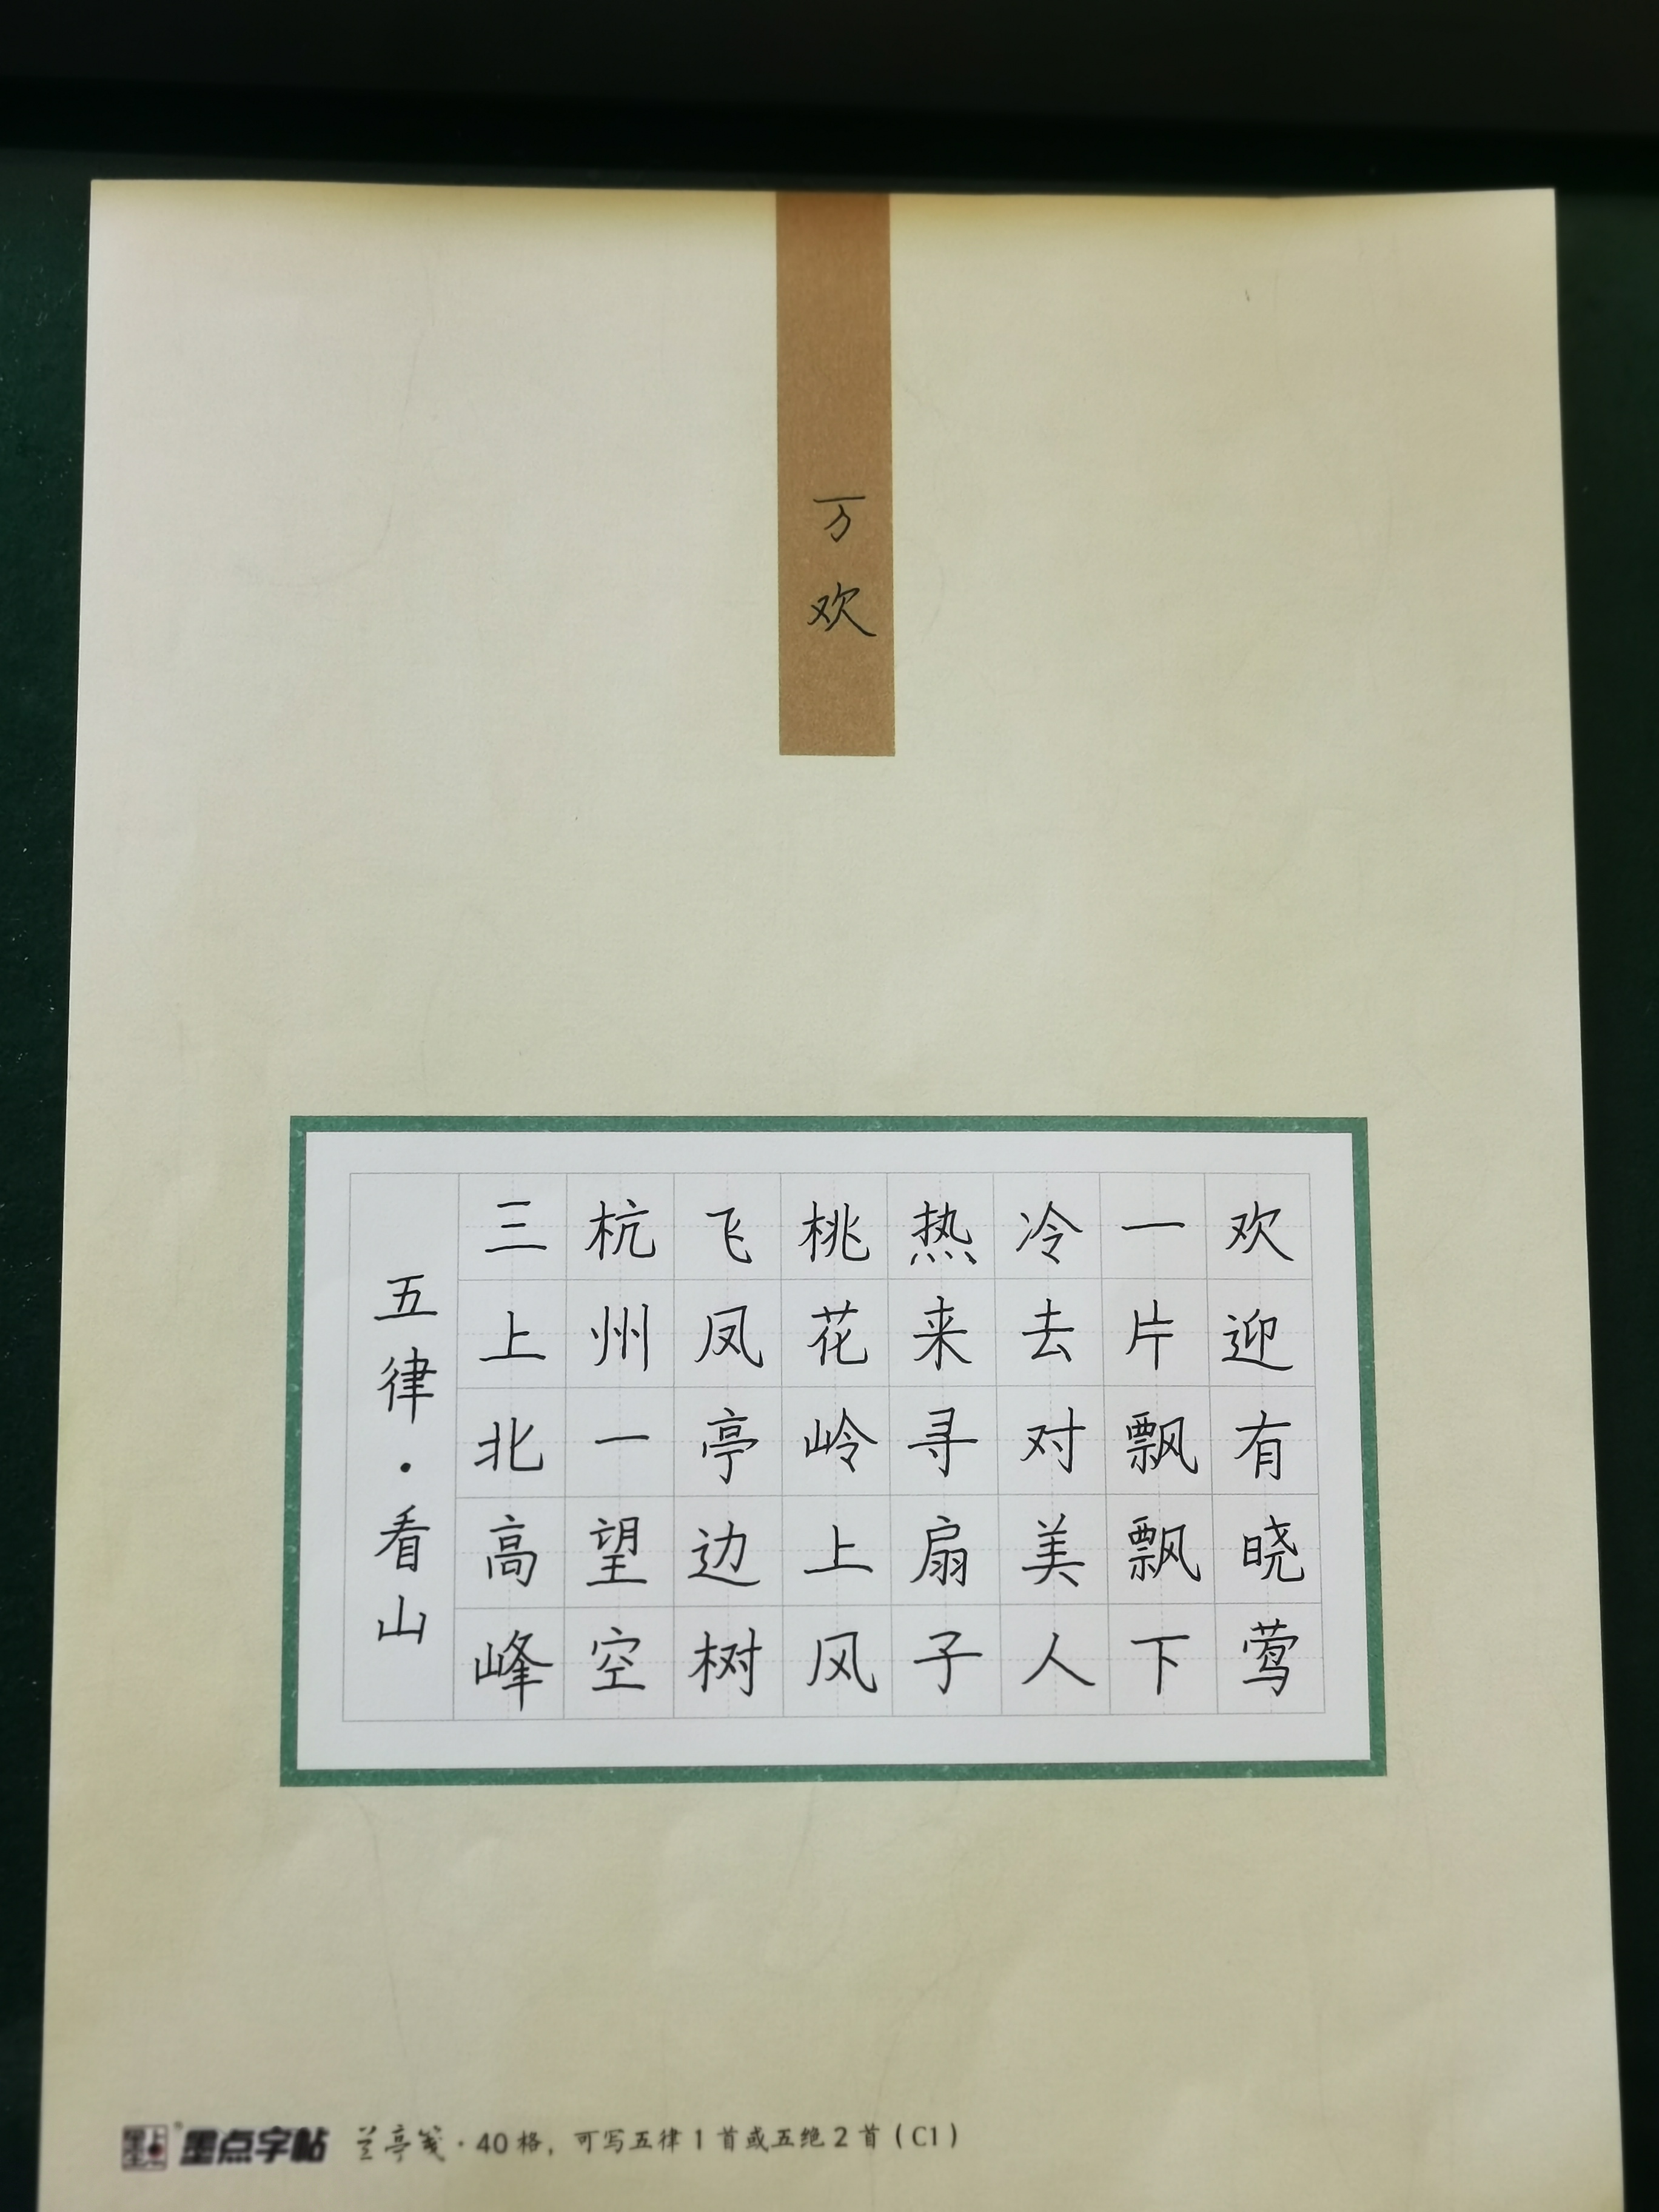 万欢
五律·看山
三上北高峰
杭州一望空
飞凤亭边树
桃花岭上风
热来寻扇子
冷去对美人
一片飘飘下
欢迎有晓莺
墨点字帖 兰亭笺·40格，可写五律1首或五绝2首（C1）